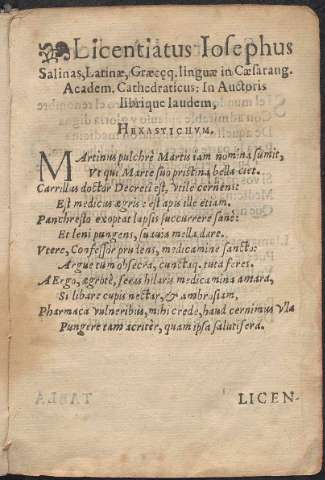 Licentiatus Iosephus
Salinas, Latinæ, Græcęq; linguæ in Cæsaraug.
Academ. Cathedraticus: In Auctoris
librique laudem,
HEXASTICHVM.
MArtinus pulchrè Martis iam nomina sumit,
Vt qui Marte suo pristina bella ciet.
Carrillus doctor Decreti est, vtile cerneni:
Est medicus ægris: est apis ille etiam.
Panchresto exoptat lapsis succurrere sanè:
Et leni pungens, suauia mella dare.
Vtere, Confessor prudens, medicamine sancto:
Argue tum obsecra, cunctaq; tuta feres.
AErgo, ægrote, feras hilaris medicamina amara,
Si libare cupis nectar, & ambrosiam,
Pharmaca vulneribus, mihi crede, haud cernimus vlla
Pungere tam acritèr, quam ipsa salutifera.
LICEN-